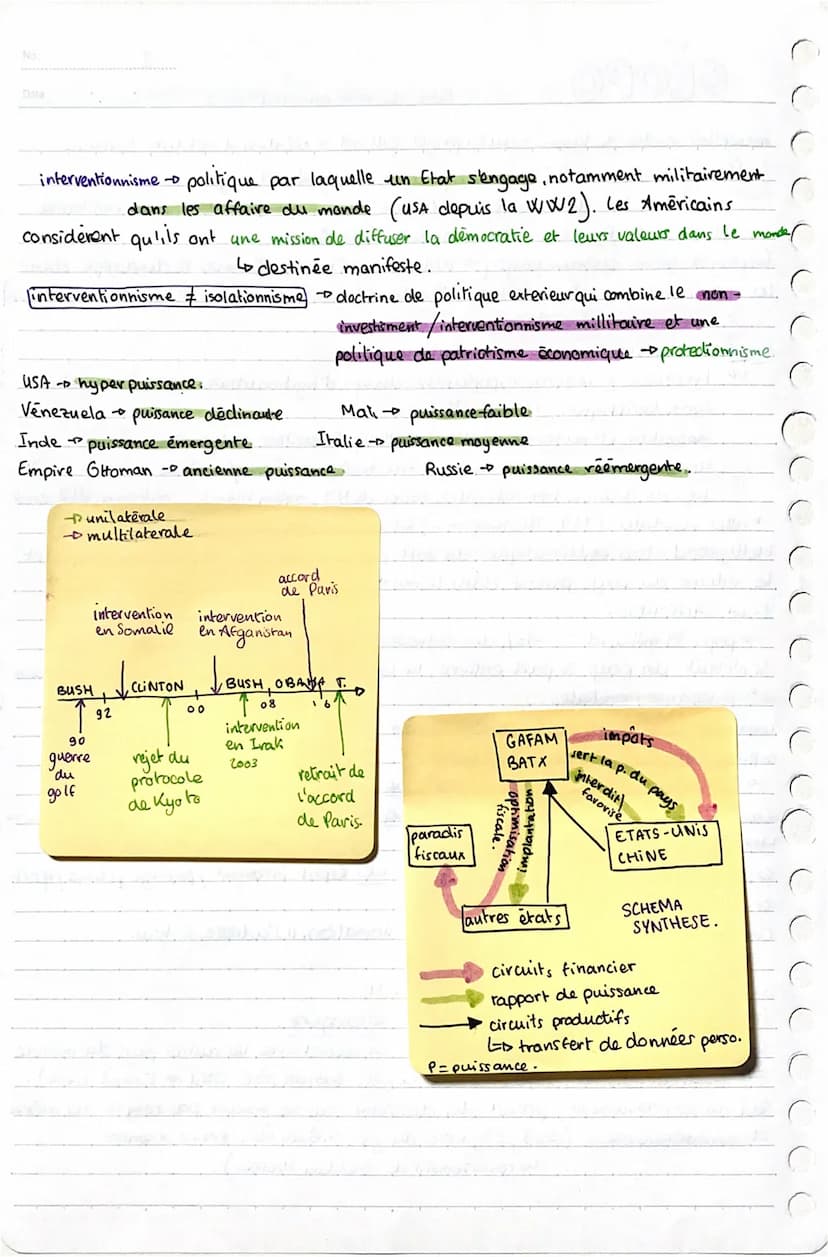 No:
Date
interventionnisme → politique par laquelle un Etat s'engage, notamment militairement
dans les affaire du monde (USA depuis la WW2). Les Américains
considèrent qu'ils ont une mission de diffuser la démocratie et leurs valeurs dans le monde
↳ destinée manifeste.
interventionnisme ≠ isolationnisme → doctrine de politique exterieur qui combine le non-
investisment/interventionnisme millitaire et une
politique de patriotisme économique → protectionnisme
USA → hyper puissance.
Vénezuela → puisance déclinante Mali → puissance faible
Inde → puissance émergente Italie → puissance moyenne
Empire Ottoman → ancienne puissance Russie → puissance réémergente.
→ unilatérale
→ multilaterale
accord
de Paris
intervention
en Somalie
intervention
en Afganistan
BUSH CLINTON BUSH OBAMA T.
90 92 00 08 16
guerre
du
golf
rejet du
protocole
de Kyoto
intervention
en Irak
2003
retrait de
l'accord
de Paris.
GAFAM
BATX
impôts
sert la p. du pays
interdit/
favorise
optimisation
fiscale.
implantation
paradis
fiscaux
ETATS-UNIS
CHINE
autres états
SCHEMA
SYNTHESE.
→ circuits financier
→ rapport de puissance
→ circuits productifs
↳ transfert de données perso.
P = puissance.